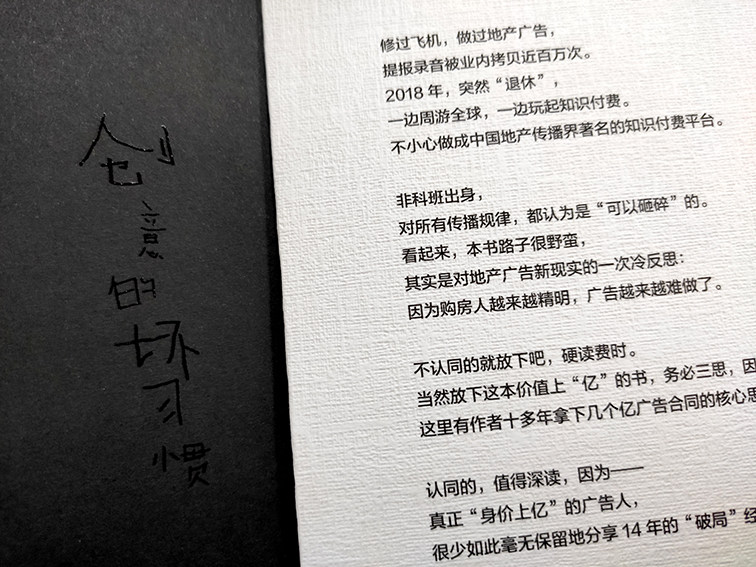 创意的坏习惯
修过飞机，做过地产广告，
提报录音被业内拷贝近百万次。
2018 年，突然“退休”，
一边周游全球，一边玩起知识付费。
不小心做成中国地产传播界著名的知识付费平台。
非科班出身，
对所有传播规律，都认为是“可以砸碎”的。
看起来，本书路子很野蛮，
其实是对地产广告新现实的一次冷反思：
因为购房人越来越精明，广告越来越难做了。
不认同的就放下吧，硬读费时。
当然放下这本价值上“亿”的书，务必三思，因
这里有作者十多年拿下几个亿广告合同的核心思
认同的，值得深读，因为——
真正“身价上亿”的广告人，
很少如此毫无保留地分享 14 年的“破局”经